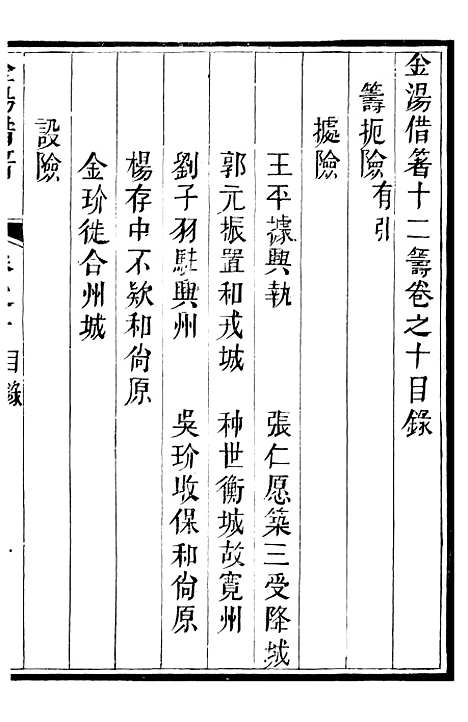 金湯借箸十二籌卷之十目錄
籌扼險有引
據險
王平據興執　張仁愿築三受降城
郭元振置和戎城　种世衡城故寬州
劉子羽駐興州　吳玠收保和尙原
楊存中不欵和尙原
金玠徙合州城
設險